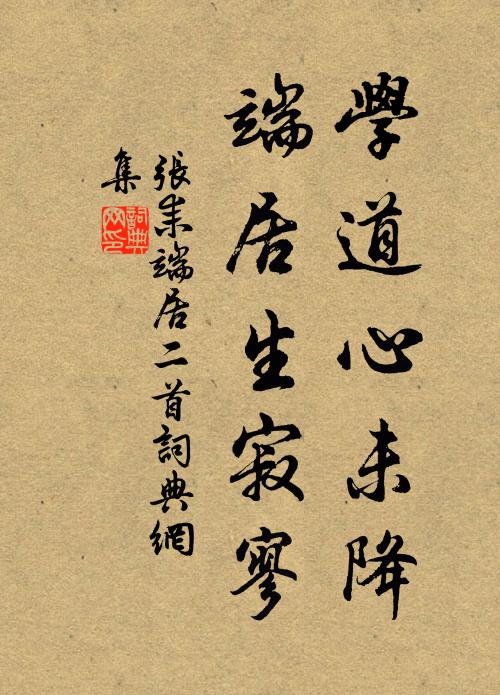 學道心未降
端居生寂寥
張耒端居二首詞典網
集
詞典
网印